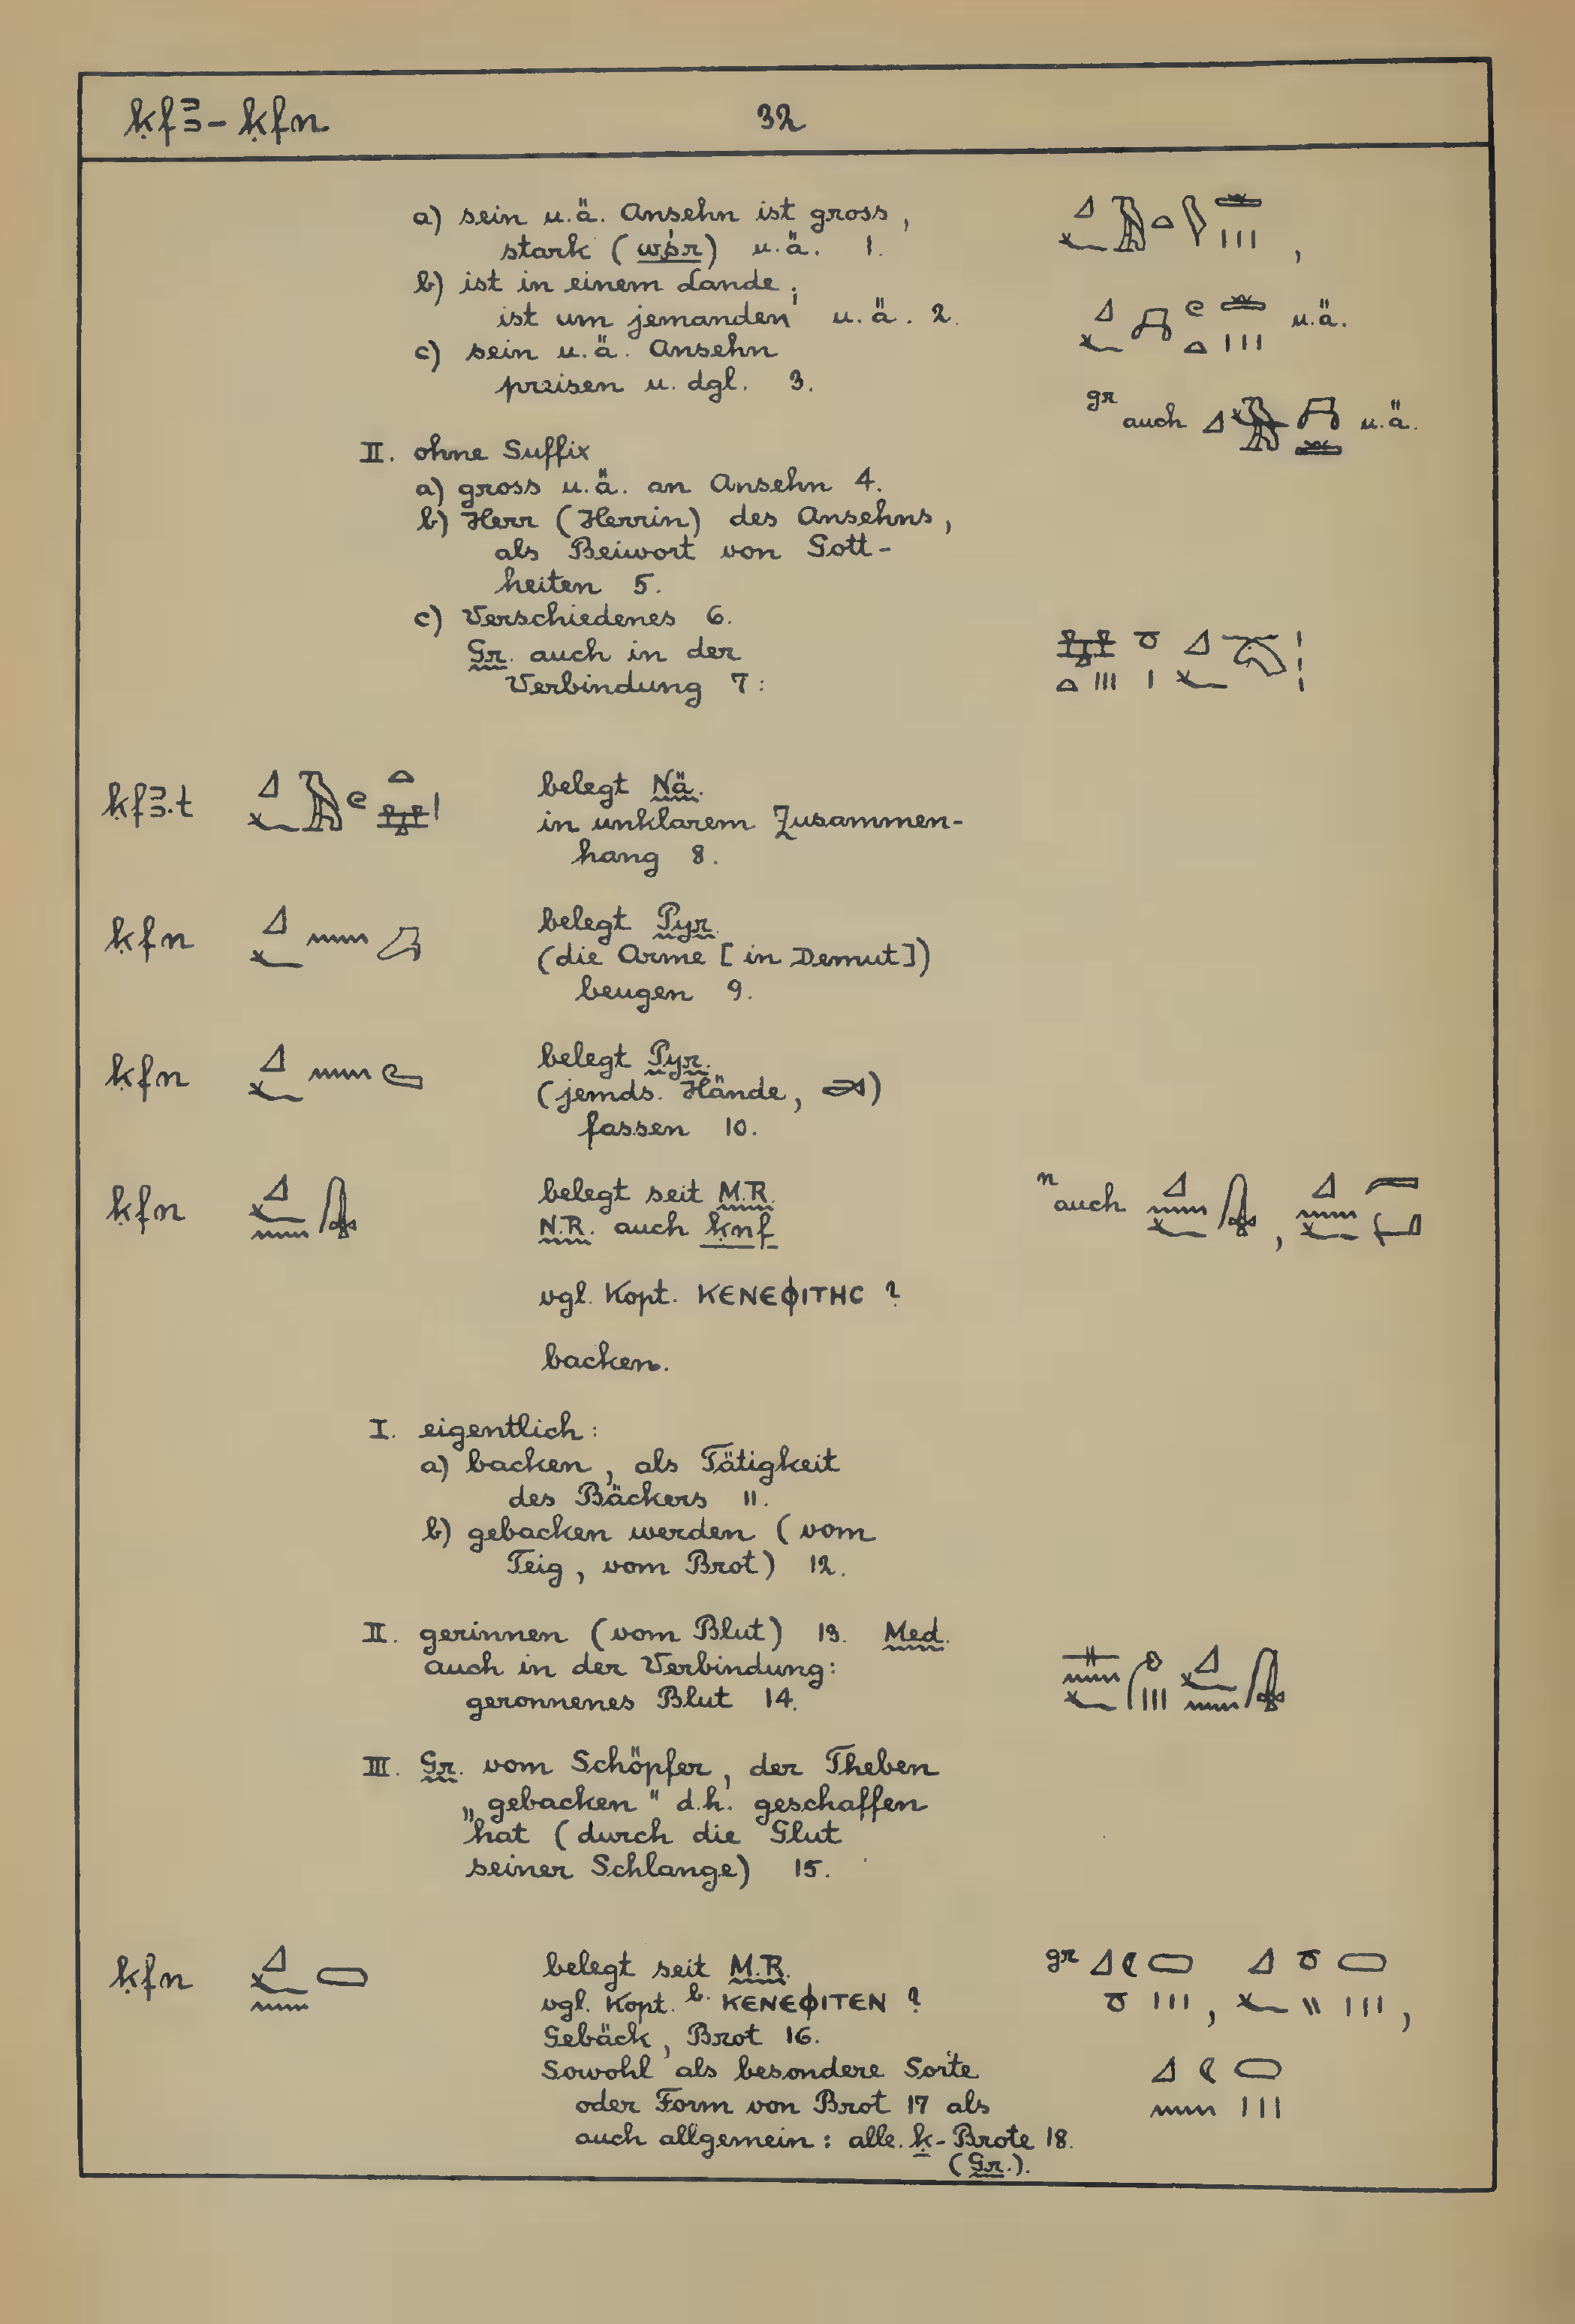 ḳfꜣ - ḳfn 32
a) sein u.ä. Ansehn ist gross,
stark (wśr) u.ä. 1.
b) ist in einem Lande,
ist um jemanden u.ä. 2.
u.ä.
c) sein u.ä. Ansehn
preisen u. dgl. 3.
gr auch u.ä.
II. ohne Suffix
a) gross u.ä. an Ansehn 4.
b) Herr (Herrin) des Ansehns,
als Beiwort von Gott-
heiten 5.
c) Verschiedenes 6.
Gr. auch in der
Verbindung 7:
ḳfꜣ.t belegt Nä.
in unklarem Zusammen-
hang 8.
ḳfn belegt Pyr.
(die Arme [in Demut])
beugen 9.
ḳfn belegt Pyr.
(jemds. Hände, )
fassen 10.
ḳfn belegt seit M.R.
n auch
N.R. auch ḳnf
vgl. Kopt. ⲔⲈⲚⲈⲪⲒⲦⲎⲤ ?
backen.
I. eigentlich:
a) backen, als Tätigkeit
des Bäckers 11.
b) gebacken werden (vom
Teig, vom Brot) 12.
II. gerinnen (vom Blut) 13. Med.
auch in der Verbindung:
geronnenes Blut 14.
III. Gr. vom Schöpfer, der Theben
„gebacken" d.h. geschaffen
hat (durch die Glut
seiner Schlange) 15.
ḳfn belegt seit M.R.
gr
vgl. Kopt. b. ⲔⲈⲚⲈⲪⲒⲦⲈⲚ ?
Gebäck, Brot 16.
Sowohl als besondere Sorte
oder Form von Brot 17 als
auch allgemein: alle ḳ-Brote 18.
(Gr.).